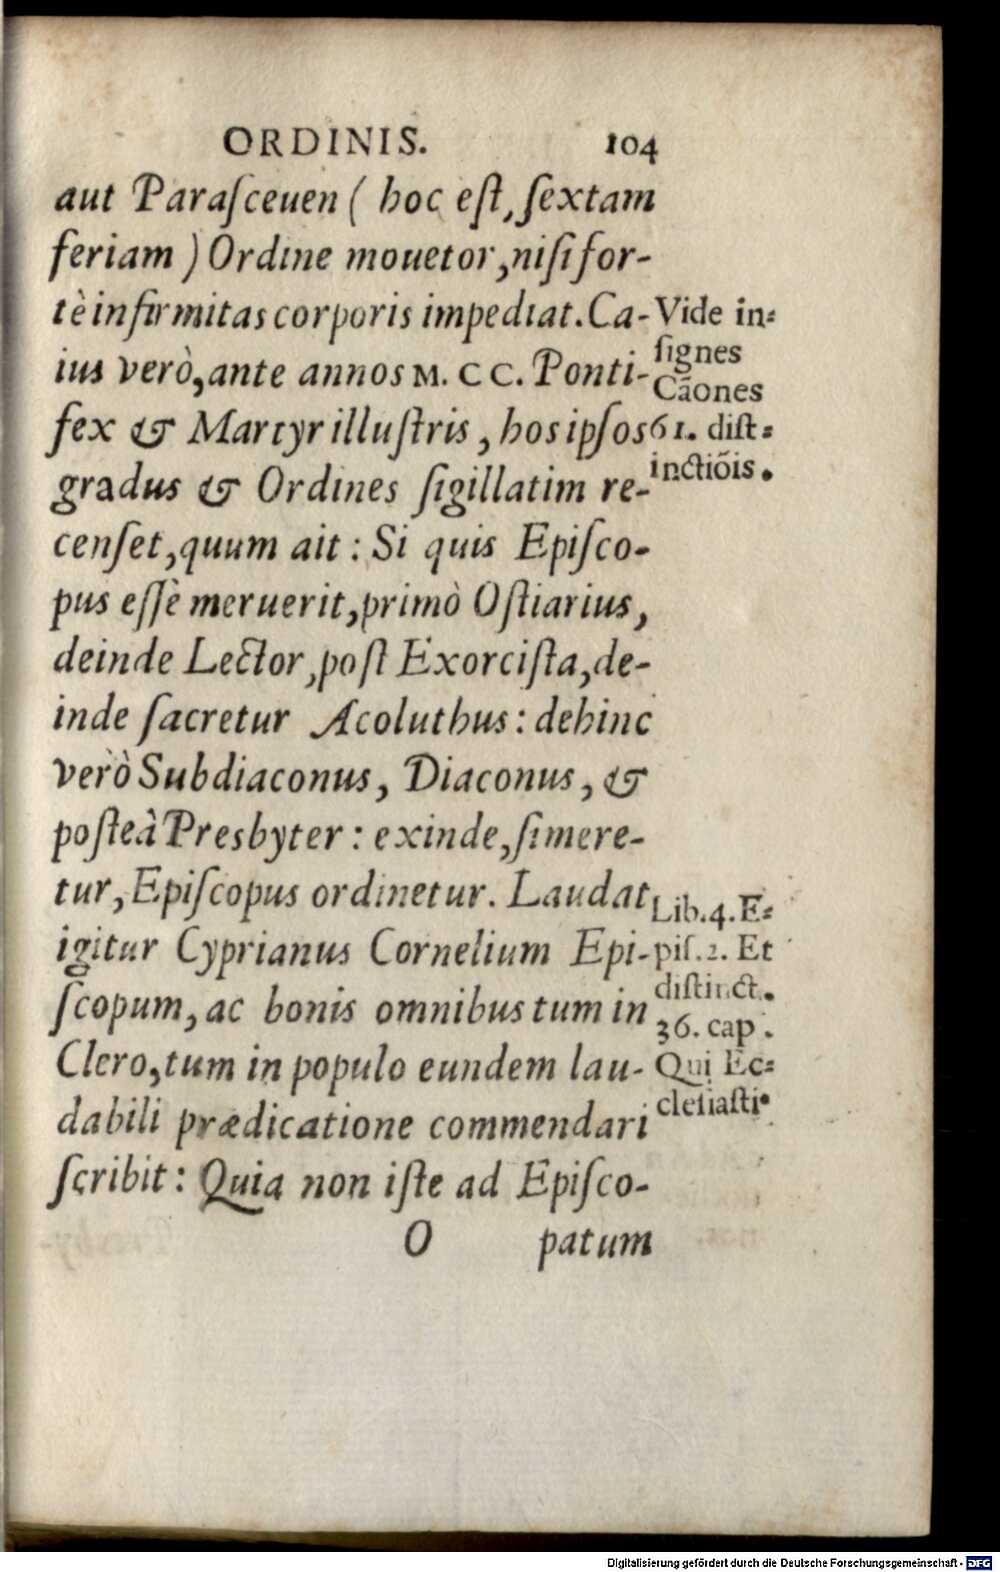 ORDINIS. 104
aut Paraſceuen ( hoc eſt, ſextam
feriam ) Ordine mouetor, niſi for-
tè infirmitas corporis impediat. Ca-
ius verò, ante annos M. C C. Ponti-
fex & Martyr illuſtris, hos ipſos
gradus & Ordines ſigillatim re-
cenſet, quum ait : Si quis Epiſco-
pus eſſè meruerit, primò Oſtiarius,
deinde Lector, poſt Exorciſta, de-
inde ſacretur Acoluthus : dehinc
verò Subdiaconus, Diaconus, &
poſteà Presbyter : exinde, ſi mere-
tur, Epiſcopus ordinetur. Laudat
igitur Cyprianus Cornelium Epi-
ſcopum, ac bonis omnibus tum in
Clero, tum in populo eundem lau-
dabili prædicatione commendari
ſcribit : Quia non iſte ad Epiſco-
O patum
Vide in-
ſignes
Cãones
61. diſt-
inctiõis.
Lib. 4. E-
piſ. 2. Et
diſtinct.
36. cap.
Qui Ec-
cleſiaſti
Digitalisierung gefördert durch die Deutsche Forschungsgemeinschaft - DFG